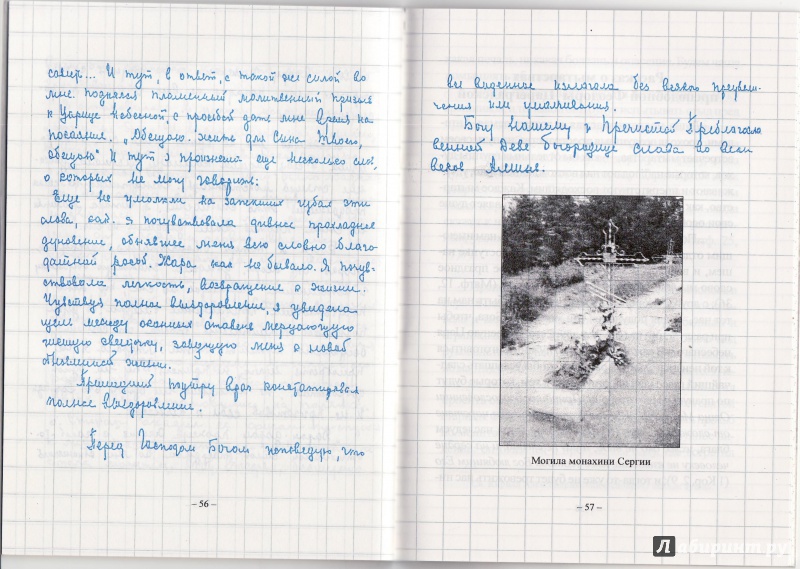 совет... И тут, в ответ, с такой же силой во
мне поднялся пламенный молитвенный призыв
к Царице Небесной, с просьбой дать мне время на
покаяние. „Обещаю жить для Сына Твоего,
обещаю" И тут я произнесла еще несколько слов,
о которых не могу говорить.
Еще не умолкли на запекших губах эти
слова, как я почувствовала дивное прохладное
дуновение, обнявшее меня всю словно благо-
датной росой. Жара как не бывало. Я почув-
ствовала легкость, возвращение к жизни.
Чувствуя полное выздоровление, я увидела
щель между оконных ставень мерцающую
звездочку, зовущую меня к новой
жизни.
Пришедший поутру врач констатировал
полное выздоровление.
Перед Господом Богом исповедую, что
– 56 –
все виденное излагала без всякого преувели-
чения или умалчивания.
Богу нашему и Пречистой Преблагосло
венной Деве Богородице слава во веки
веков Аминь.
Могила монахини Сергии
– 57 –
Лабиринт.ру